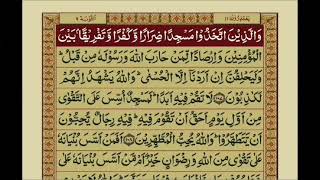 يعتذرون ١١
التوبة ٩
وَالَّذِيْنَ اتَّخَذُوْا مَسْجِدًا ضِرَارًا وَّكُفْرًا وَّتَفْرِيْقًۢا بَيْنَ
الْمُؤْمِنِيْنَ وَاِرْصَادًا لِّمَنْ حَارَبَ اللّٰهَ وَرَسُوْلَهٗ مِنْ قَبْلُ ؕ
وَلَيَحْلِفُنَّ اِنْ اَرَدْنَاۤ اِلَّا الْحُسْنٰى ؕ وَاللّٰهُ يَشْهَدُ اِنَّهُمْ
لَكٰذِبُوْنَ ﴿۱۰۷﴾ لَا تَقُمْ فِيْهِ اَبَدًا ؕ لَمَسْجِدٌ اُسِّسَ عَلَى التَّقْوٰى
مِنْ اَوَّلِ يَوْمٍ اَحَقُّ اَنْ تَقُوْمَ فِيْهِ ؕ فِيْهِ رِجَالٌ يُّحِبُّوْنَ
اَنْ يَّتَطَهَّرُوْا ؕ وَاللّٰهُ يُحِبُّ الْمُطَّهِّرِيْنَ ﴿۱۰۸﴾ اَفَمَنْ اَسَّسَ بُنْيَانَهٗ
عَلٰى تَقْوٰى مِنَ اللّٰهِ وَرِضْوَانٍ خَيْرٌ اَمْ مَّنْ اَسَّسَ بُنْيَانَهٗ عَلٰى